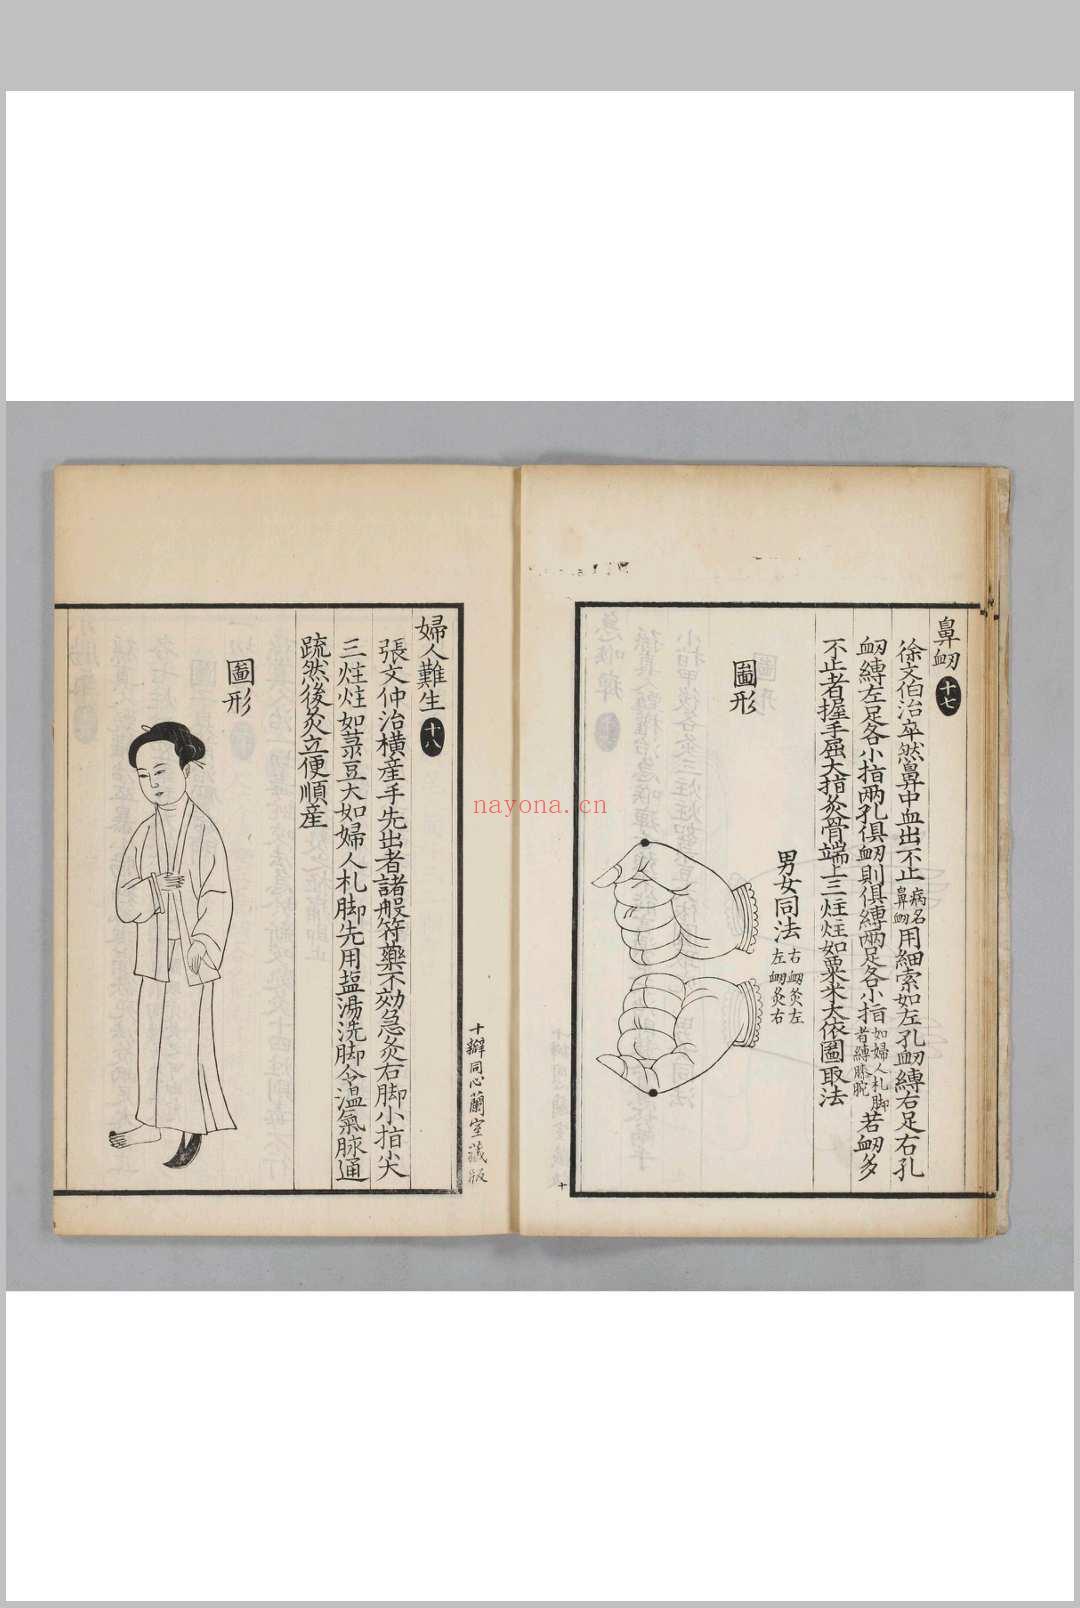 鼻衂 十七
徐文伯治卒然鼻中血出不止病名鼻衂用細索如左孔衂縛右足右孔
衂縛左足各小指兩孔俱衂則俱縛兩足各小指如婦人札脚者縛膝腕若衂多
不止者握手屈大指灸骨端上三炷炷如粟米大依圖取法
男女同法右衂灸左左衂灸右
圖形
十
婦人難生 十八
張文仲治橫産手先出者諸般符藥不効急灸右脚小指尖
三炷炷如菉豆大如婦人札脚先用塩湯洗脚令溫氣脉通
疏然後灸立便順産
圖形
十瓣同心蘭室藏版
nayona.cn